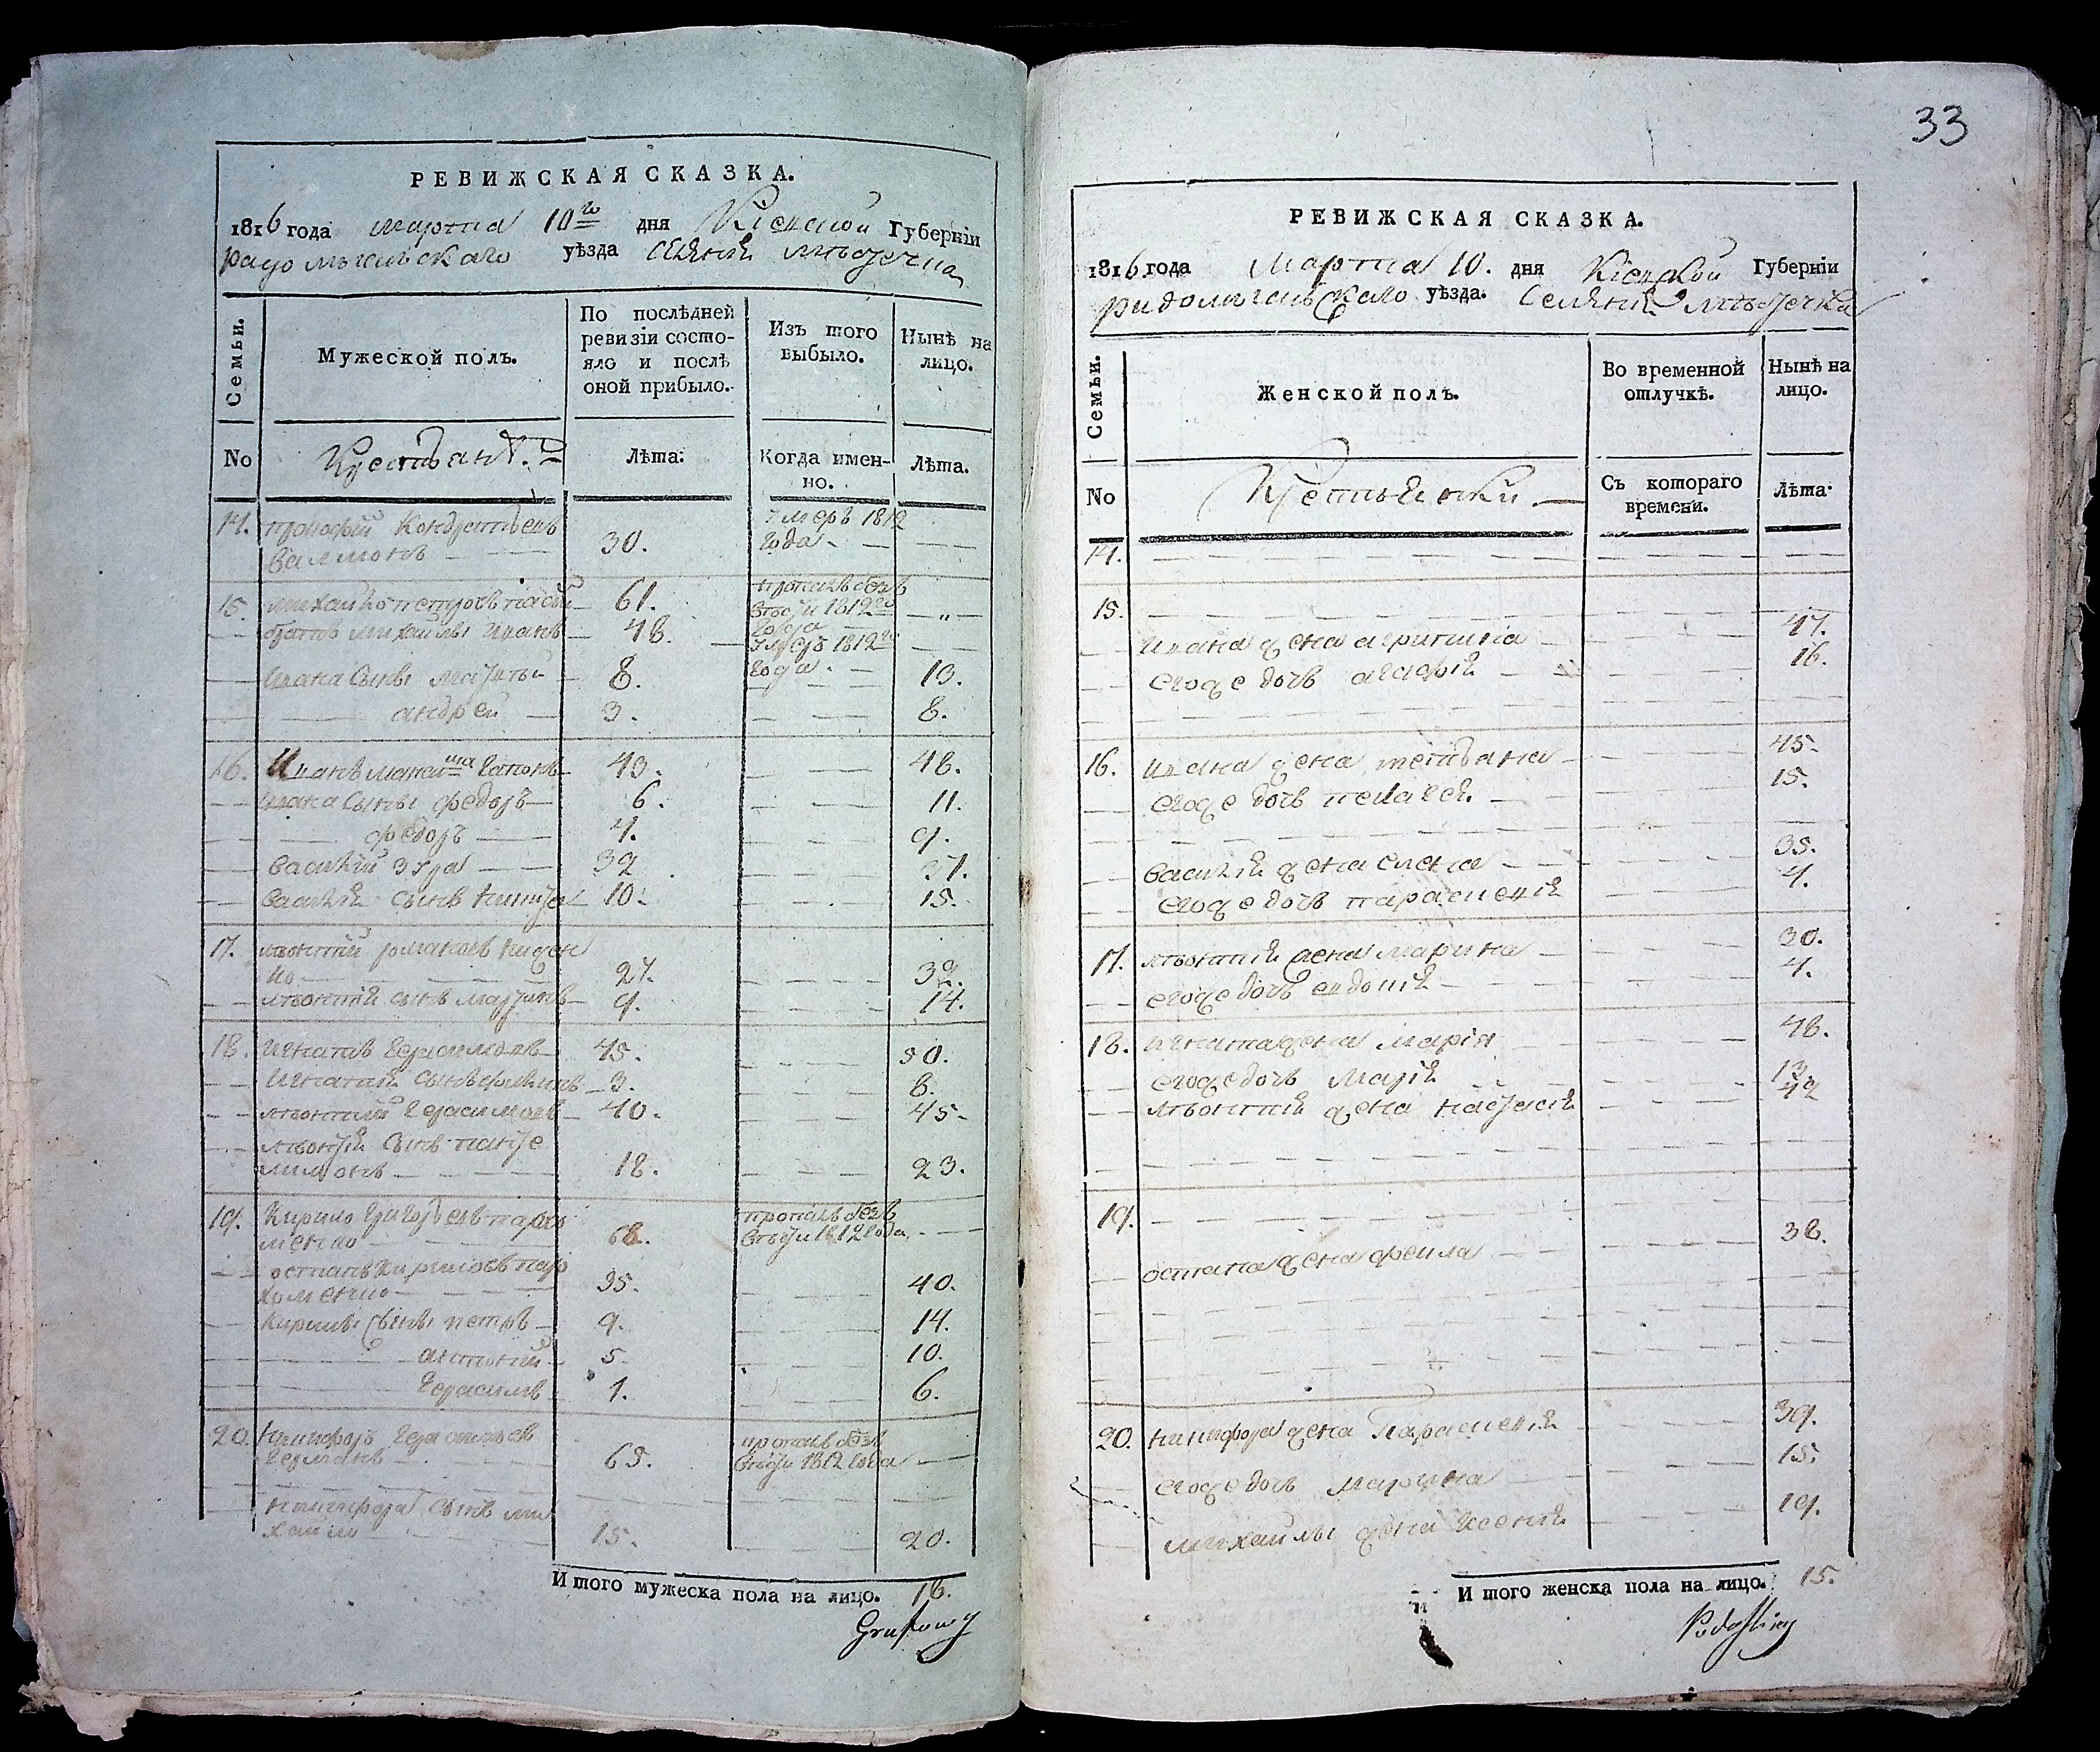 РЕВИЖСКАЯ СКАЗКА.
1816 года марта 10го дня Кіевской Губерніи
радомысльскаго уѣзда
Семьи.
Мужеской полъ.
По послѣдней ревизіи состо-
яло и послѣ
оной прибыло.
Изъ того
выбыло.
Нынѣ на
лицо.
No
Крестьянъ
Лѣта:
Когда имен-
но.
Лѣта.
14. прокофій Кондратьевъ умеръ 1812
30. года
15. михайло петровъ 61. пропалъ безъ
вѣсти 1812го
братъ михайлы иванъ 48. года
умеръ 1812го
ивана сыны 8. года 13.
андрей 3. 8.
16. Иванъ 43. 48.
ивана сыны федоръ 6. 11.
федоръ 4. 9.
василій 32 37.
василія сынъ 10. 15.
17. леонтій романовъ
27. 32.
леонтія сынъ мартинъ 9. 14.
18. игнатъ герасимовъ 45. 50.
игнатія сынъ 3. 8.
леонтий герасимовъ 40. 45.
леонтія сынъ панте
лимонъ 18. 23.
19. Кирило григорьевъ пархо пропалъ безъ
менко 68. вѣсти 1812 года
остапъ кириловъ пар
хоменко 35. 40.
кирилы сыны петръ 9. 14.
антоній 5. 10.
герасимъ 1. 6.
20. никифоръ пропалъ безъ
65. вѣсти 1812 года
никифора сынъ ми
хайло 15. 20.
Итого мужеска пола на лицо. 18.
33
РЕВИЖСКАЯ СКАЗКА.
1816 года Марта 10. дня Кіевской Губерніи
радомысльскаго уѣзда.
Семьи.
Женской полъ.
Во временной
отлучкѣ.
Нынѣ на
лицо.
No
Крестьянки
Съ котораго
времени.
Лѣта:
14.
15.
ивана жена агрипина 47.
егоже дочь агафія 16.
16. ивана жена тетьяна 45.
егоже дочь пелагея 15.
василія жена елена 35.
егоже дочь парасковія 4.
17. леонтія жена марина 30.
егоже дочь евдокія 4.
18. игната жена марія 48.
егоже дочь марія 13.
леонтія жена настасія 42
19.
остапа жена фекла 38.
20. никифора жена Парасковія 39.
егоже дочь марина 15.
михайлы жена ксенія 19.
Итого женска пола на лицо. 15.